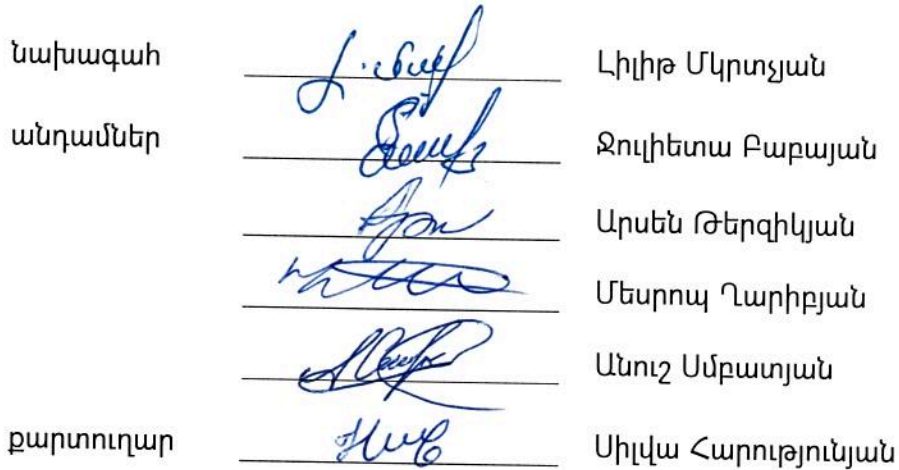 նախագահ Լիլիթ Մկրտչյան
անդամներ Ջուլիետա Բաբայան
Արսեն Թերզիկյան
Մեսրոպ Ղարիբյան
Անուշ Սմբատյան
քարտուղար Սիլվա Հարությունյան